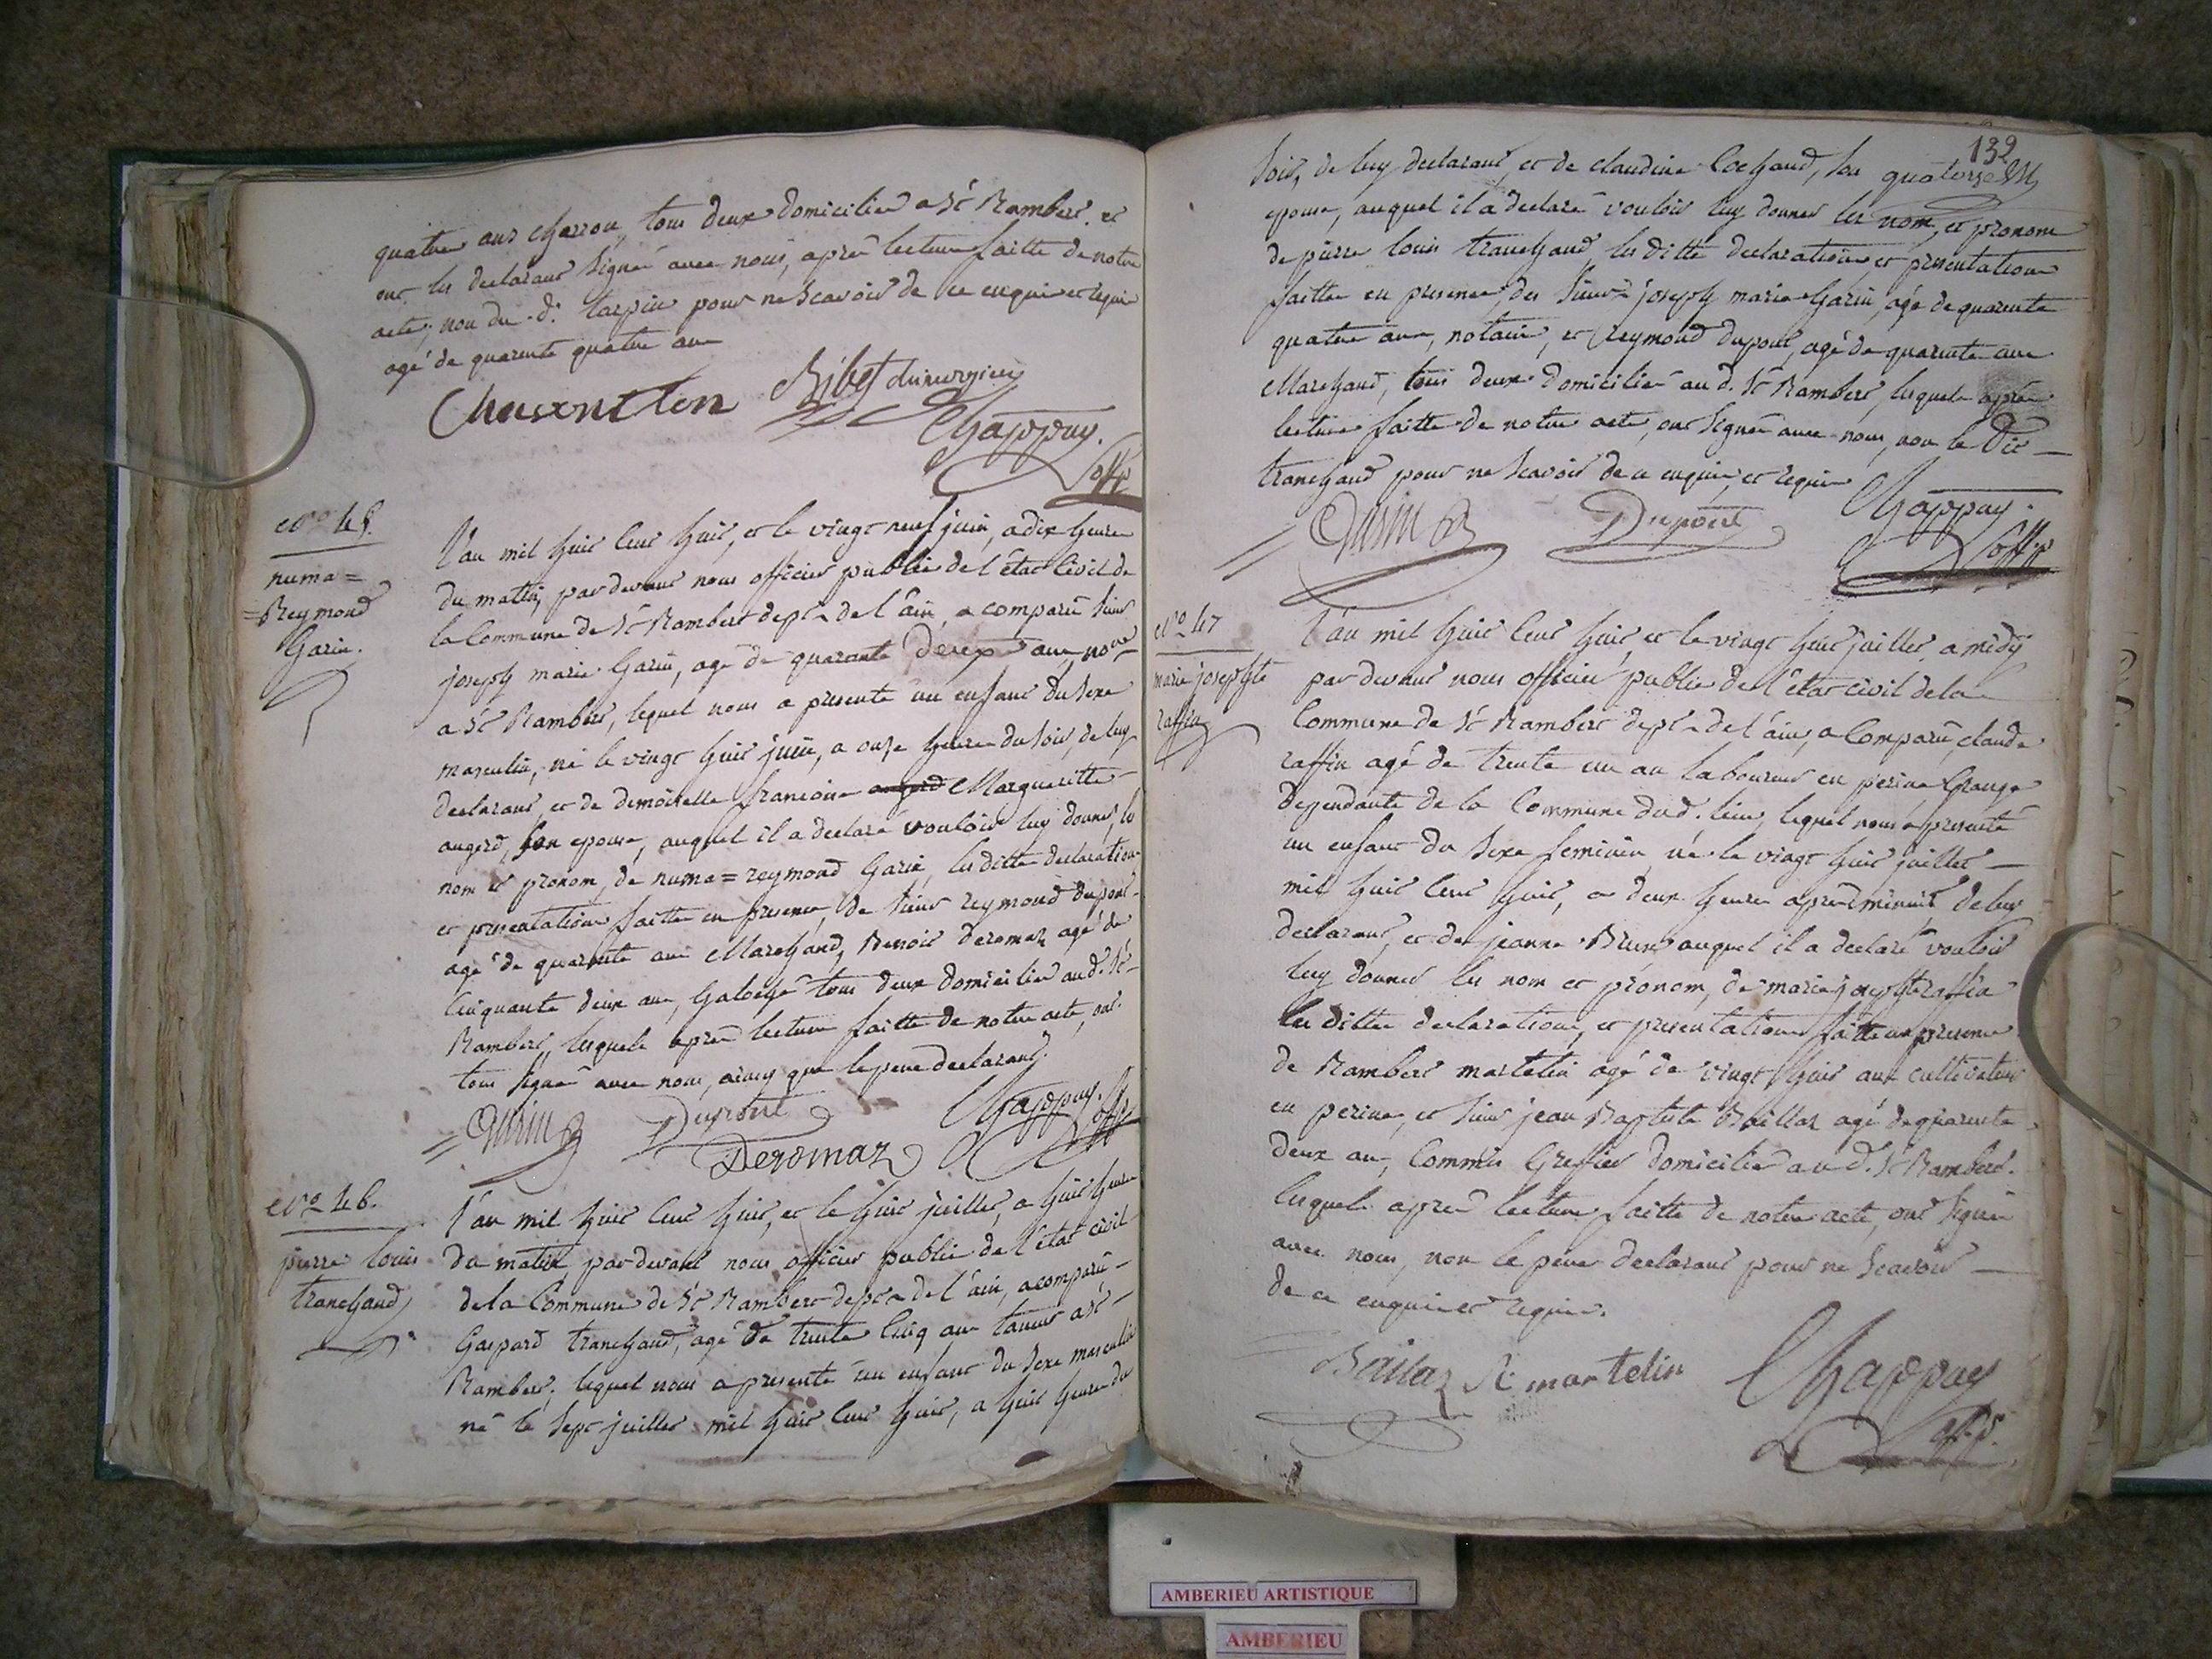 quatre ans charron, tous deux domiciliés a St Rambert, et
ont les declarans signé avec nous, après lecture faitte de notre
acte, non du d. tarpin pour ne scavoir de ce enquis et requis
agé de quarente quatre ans
Ribet chirurgien
Chappuy.
offp
No 45.
numa=
=Reymond
Garin.
l'an mil huit cent huit, et le vingt neuf juin, a dix heures
du matin, par devant nous officier public de l'état civil de
la Commune de St Rambert dept de l'ain, a comparu sieur
joseph marie Garin, agé de quarante deux ans, nore
a St Rambert, lequel nous a presenté un enfant du sexe
masculin, né le vingt huit juin, a onze heures du soir, de luy
declarant, et de demoiselle françoise augerd Margueritte
augerd, son epouse, auquel il a declaré vouloir luy donner, les
nom et pronom, de numa=reymond Garin, les dittes declaration
et presentation faitte en presence, de sieur reymond dupont
agé de quarente ans Marchand, Benoit Deromaz agé de
Cinquante deux ans, Galoché tous deux domiciliés au d. St
Rambert, lesquels après lecture faitte de notre acte, ont
tous signé avec nous, ainsy que le pere declarant.
Garin
Dupont
Chappuy.
offp
Deromaz
No 46.
pierre louis
tranchand
l'an mil huit cent huit, et le huit juillet, a huit heures
du matin, par devant nous officier public de l'état civil
de la Commune de St Rambert dept de l'ain, a comparu
Gaspard tranchand, agé de trente cinq ans taneur a St
Rambert, lequel nous a presenté un enfant du sexe masculin
né le sept juillet mil huit cent huit, a huit heures du
139
quatorze
soir, de luy declarant, et de claudine Cochand, son
epouse, auquel il a declaré vouloir luy donner les nom et pronom
de pierre louis tranchand, les ditte declaration et presentation
faittes en presence, des sieurs joseph marie Garin, agé de quarente
quatre ans, notaire, et reymond dupont, agé de quarente ans
Marchand, tous deux domiciliés au d. St Rambert, lesquels après
lecture faitte de notre acte, ont signé avec nous, non le dit
tranchand pour ne scavoir de ce enquis, et requis
Garin
Dupont
Chappuy.
offp
No 47
marie josephte
raffin
l'an mil huit cent huit, et le vingt huit juillet, a midy
par devant nous officier public de l'état civil de la
Commune de St Rambert dept de l'ain, a Comparu, claude
raffin agé de trente un an laboureur en perine Grange
dependante de la Commune dud. lieu, lequel nous a presenté
un enfant du sexe feminin né le vingt huit juillet
mil huit cent huit, a deux heures après minuit de luy
declarant, et de jeanne Brun, auquel il a declaré vouloir
luy donner les nom et pronom, de marie josephte raffin
les dittes declaration, et presentation faitte en presence
de Rambert martelin agé de vingt huit ans cultivateur
en perine, et sieur jean Baptiste Baillaz agé de quarente
deux ans, Commis Greffier domicilié au d. St Rambert.
lesquels après lecture faitte de notre acte, ont signé
avec nous, non le pere declarant pour ne scavoir
de ce enquis et requis.
martelin
Chappuy
offp.
AMBERIEU ARTISTIQUE
AMBERIEU